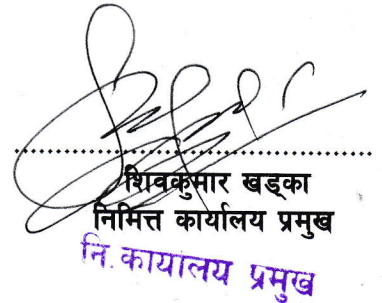 शिवकुमार खड्का
निमित्त कार्यालय प्रमुख
नि. कायालय प्रमुख